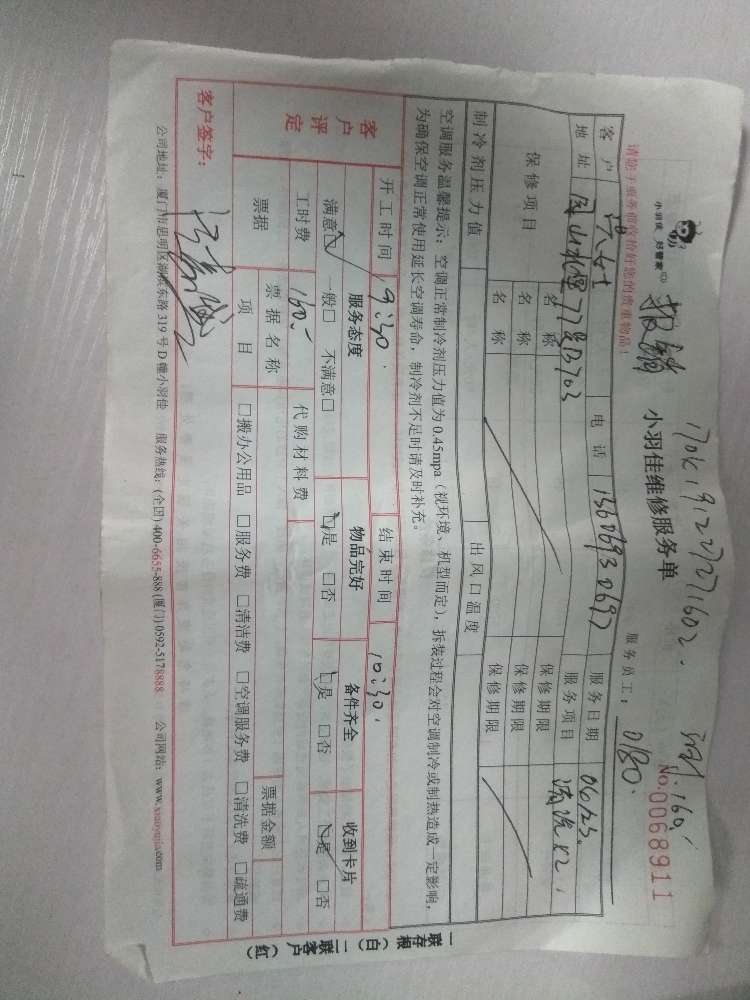 小羽佳 好管家
报销
170K191227271602.
计:160.
小羽佳维修服务单
No.0068911
请您于服务前收捡好您的贵重物品!
服务员工: 0180.
客户 女士 电话 13606930697 服务日期 06/25.
地址 77号B703 服务项目 清洗X2.
保修项目 名称 保修期限
名称 保修期限
名称 保修期限
制冷剂压力值 出风口温度
空调服务温馨提示:空调正常制冷剂压力值为0.45mpa(视环境、机型而定),拆装过程会对空调制冷或制热造成一定影响,
为确保空调正常使用延长空调寿命,制冷剂不足时请及时补充。
客户评定 开工时间 9:30. 结束时间 10:30.
服务态度 物品完好 备件齐全 收到卡片
满意□ 一般□ 不满意□ □是 □否 □是 □否 □是 □否
工时费 160. 代购材料费
票据 票据名称 票据金额
项目 □搬办公用品 □服务费 □清洁费 □空调服务费 □清洗费 □疏通费
客户签字:
公司地址:厦门市思明区湖滨东路319号D幢小羽佳 服务热线:(全国)400-6655-888 (厦门)0592-5178888 公司网站:www.xiaoyujia.com
一联存根(白) 二联客户(红)